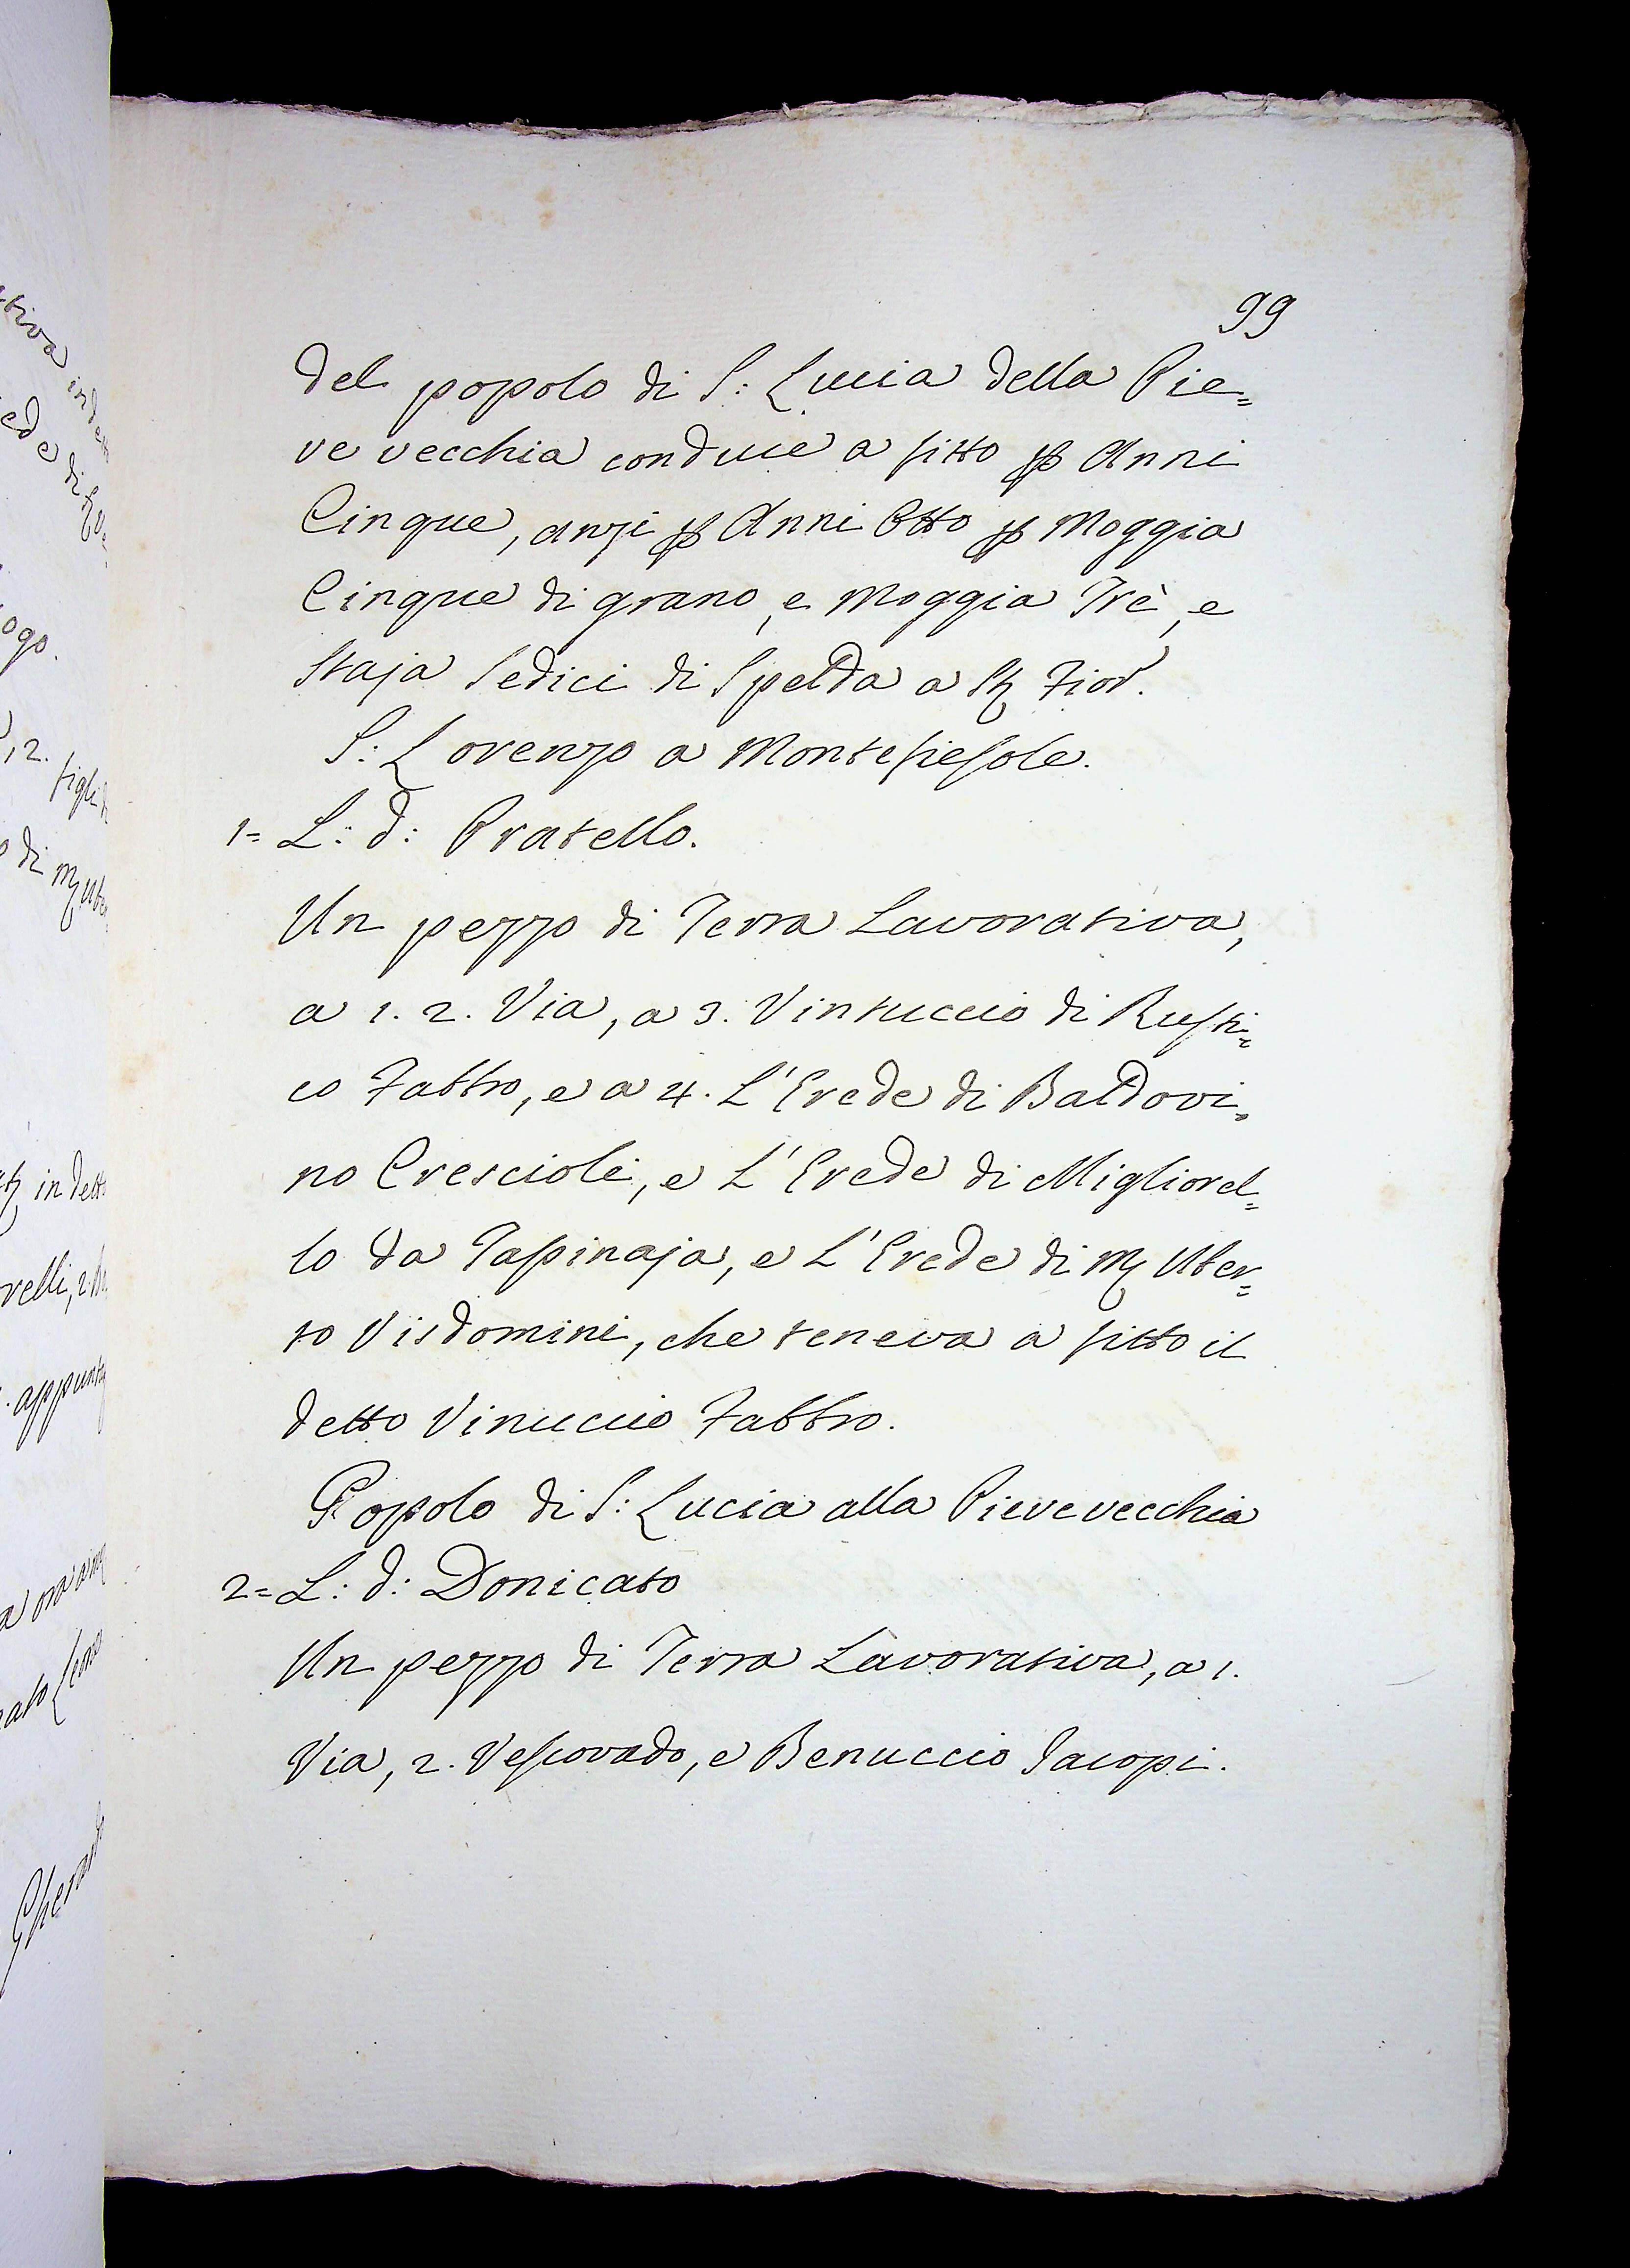 99
del popolo di S: Lucia della Pie=
ve vecchia conduce a fitto p Anni
Cinque, anzi p Anni Otto p Moggia
Cinque di grano, e Moggia Trè, e
Staja Sedici di Spelda a St Fior.
S: Lorenzo a Montefiesole.
1= L: d: Pratello.
Un pezzo di Terra Lavorativa,
a 1. 2. Via, a 3. Vintuccio di Rusti=
co Fabbro, e a 4. L'Erede di Baldovi=
no Crescioli, e L'Erede di Migliorel=
lo da Taspinaja, e L'Erede di M Uber=
to Visdomini, che teneva a fitto il
detto Vinuccio Fabbro.
Popolo di S: Lucia alla Pievevecchia
2= L: d: Donicato
Un pezzo di Terra Lavorativa, a 1.
Via, 2. Vescovado, e Benuccio Jacopi.